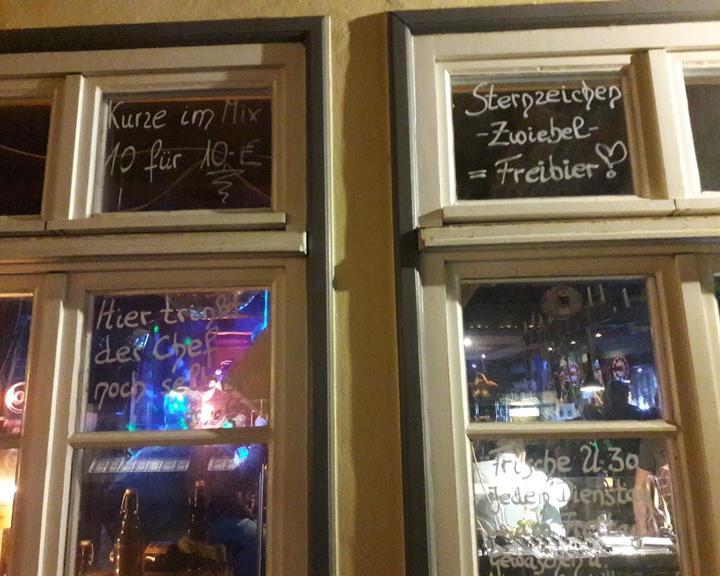 Kurze im Mix
10 für 10.-€
Sternzeichen
-Zwiebel-
= Freibier!
Hier trinkt
der Chef
noch
Frische Ü30
Jeden Dienstag
Freitag
gewaschen u.